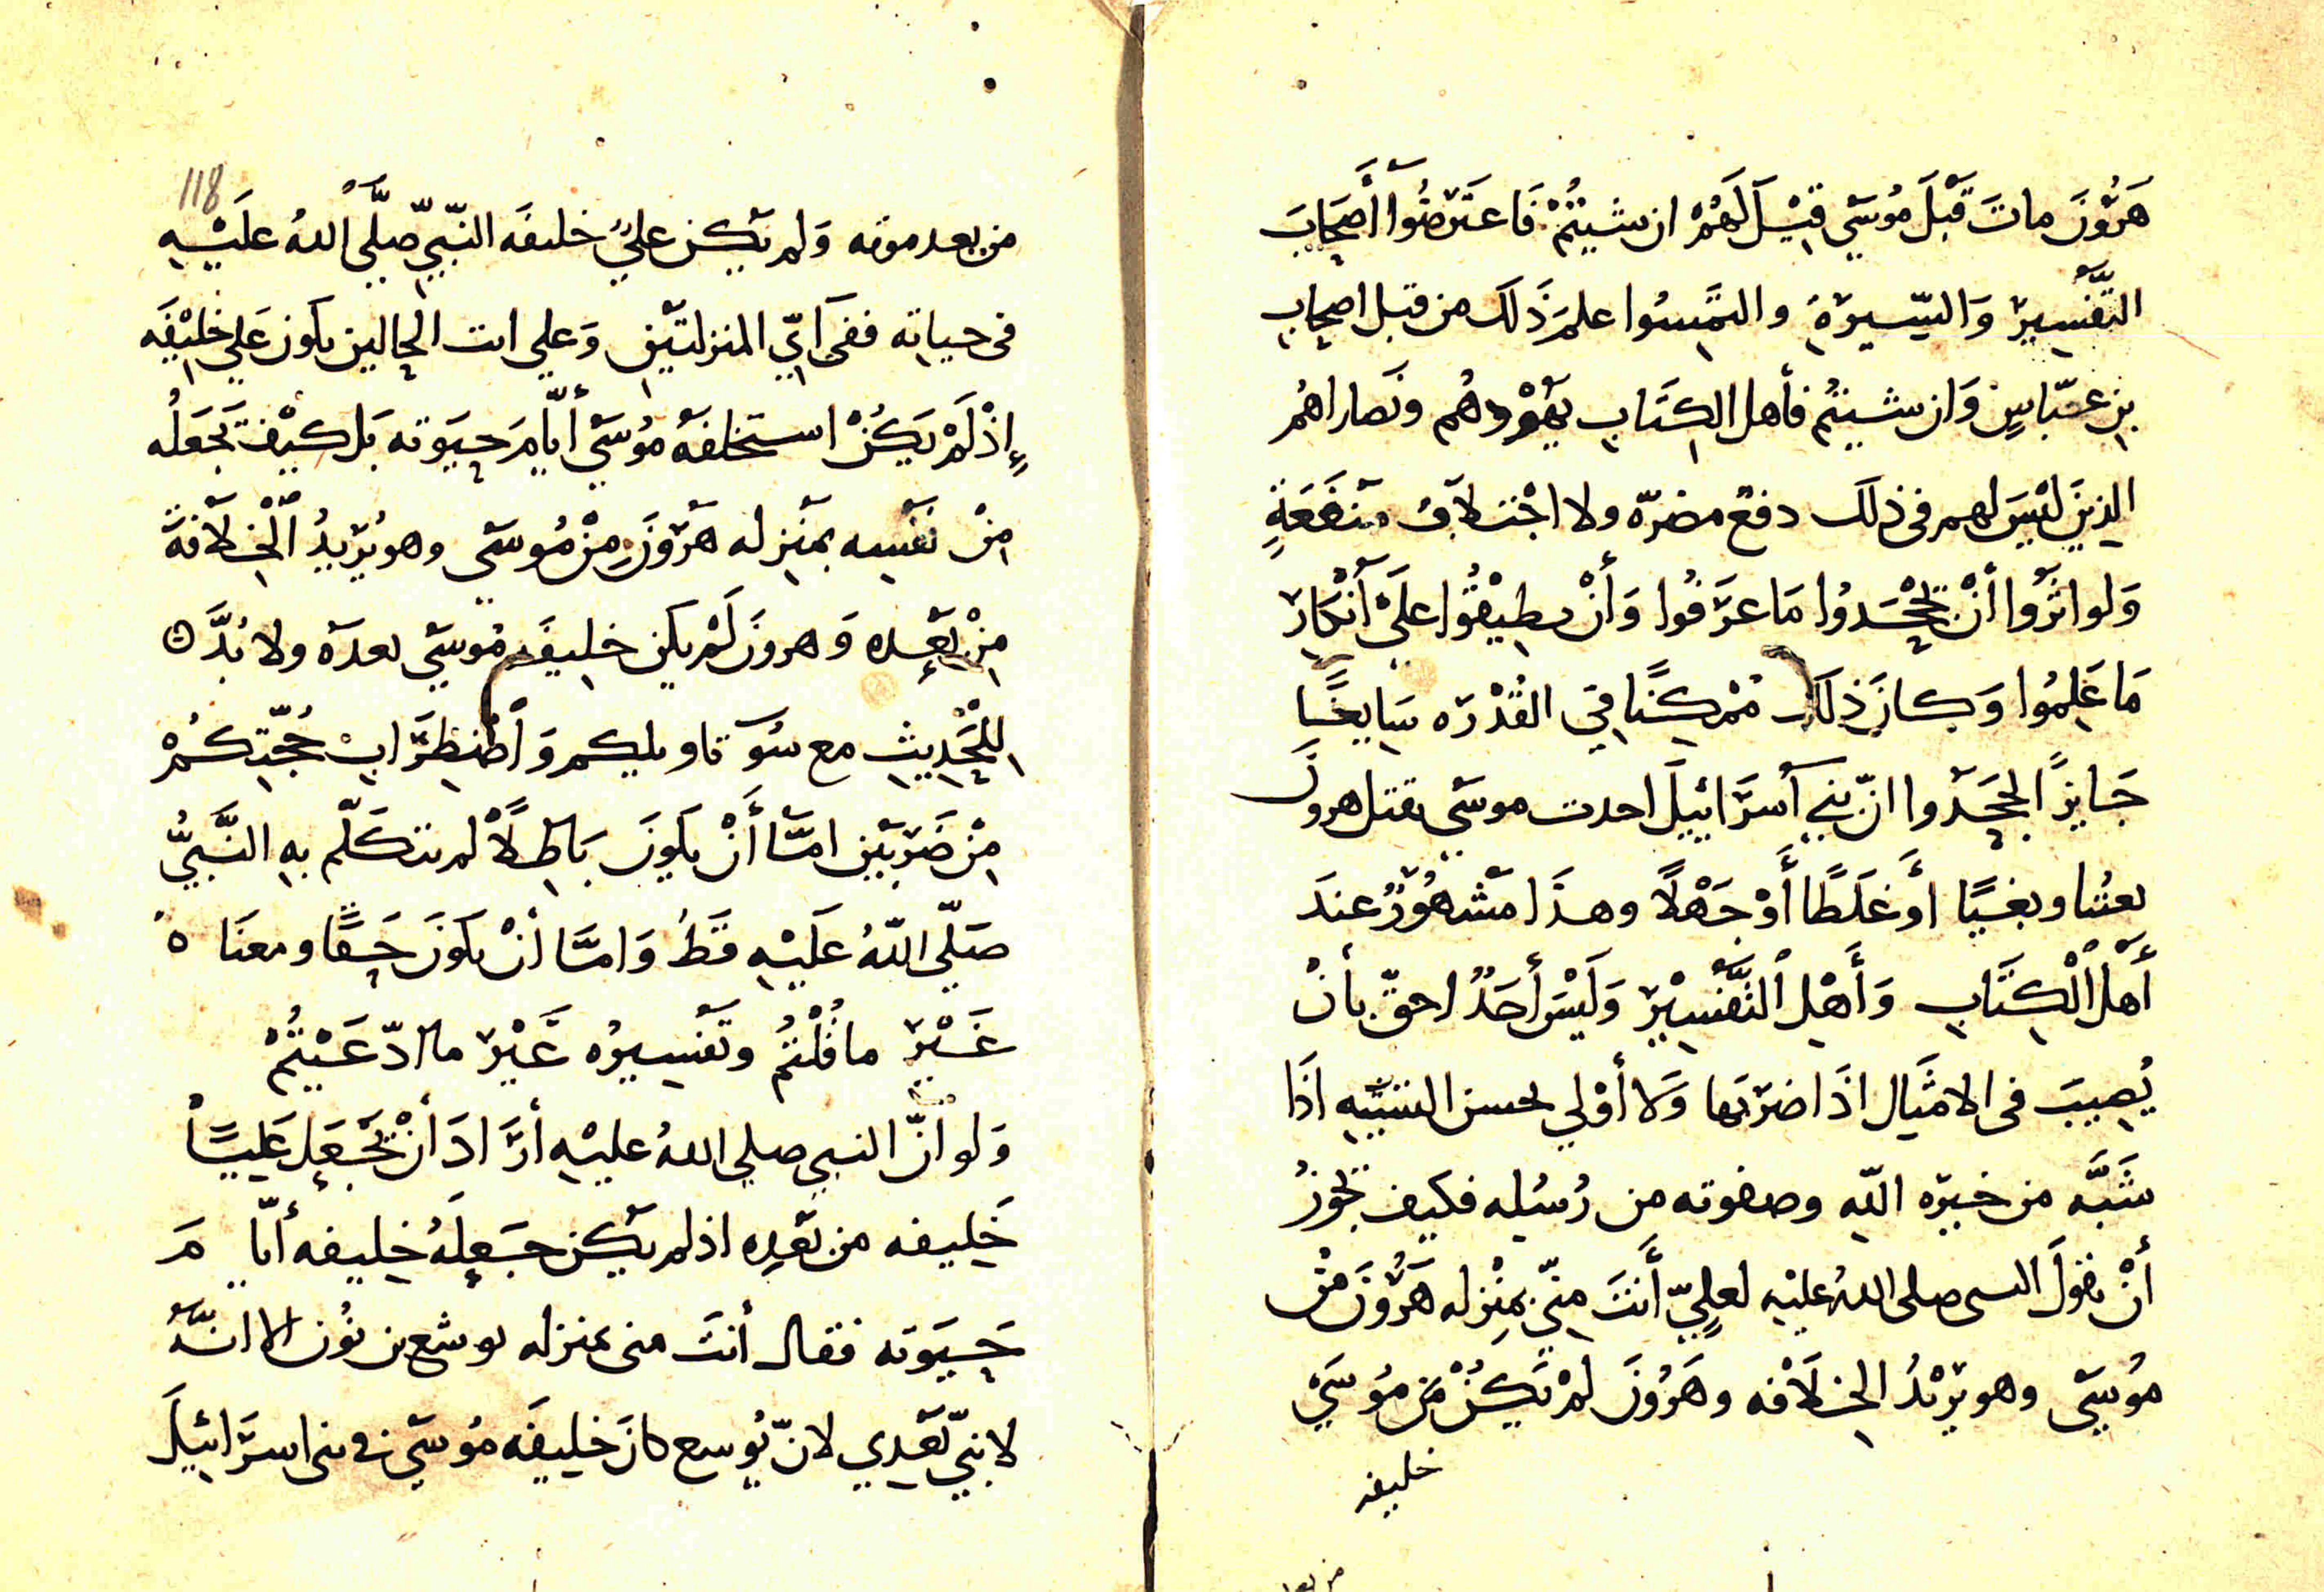 هَرُونَ ماتَ قَبلَ مُوسَى قِيْلَ لَهُمْ ان شيتُمْ فَاعتَرضُوا أَصحَابَ
التَّفْسِيرِ وَالسِّيرَةِ والتمِسُوا علمَ ذَلكَ من قبل اصحابِ
بن عبّاسٍ وَان شيتُم فأهل الكتَابِ يَهُوْدهُم ونَصاراهُم
الذِينَ ليْسَ لهم فى ذلكَ دفع مضرّه ولا اجْتلاَبُ مَنفَعَةٍ
وَلو اثَرُوا أنْ يَجْحَدُوا مَا عرَفُوا وَأنْ يطِيقُوا علَى انْكارِ
مَا عَلِمُوا وَكانَ ذلكَ مُمْكِنًا فِي القُدْرَه سَايغًا
جَايزًا لجحَدوا انّ بَنِي آسرَائيلَ احدت موسَى بقتل هرونَ
بعُتنا وبغيًا أوَ غلَطًا أَوْ جَهْلاً وهذَا مَشهُورٌ عندَ
أهلِ الْكِتَابِ وَأَهْلِ التَّفْسِيْرِ وَلَيْسَ أحَدٌ احقّ بأنْ
يُصِيبَ فى الامثَالِ اذَا ضرَبَها وَلا أوْلى بحسن التشبيه اذَا
شَبَّه من خيرَه اللّه وصفوته من رُسُلِه فكيف يَجُوزُ
أنْ يقولَ النبى صلى اللهُ عليْه لعلِيٍّ أَنتَ مِنّي بمنِزله هَرُونَ مِنْ
مُوسَى وهو يرِيْدُ الخِلاَفه وهَرُونَ لمْ يَكُنْ مِن مُوسَىَ
خليفه
118
من بعد موته وَلم يَكن عليٌ خليفَه النّبِيّ صلَّى اللهُ علَيْهِ
فى حياتِه ففى ايّ المنزلتَيْنِ وَعلى ات الحالين يكون عَلي خليْفَه
إذْ لَمْ يَكُنْ استخلفَهُ مُوسَى أيّامَ حيَوته بَل كيْفَ تَجعَلُه
مِنْ نَفسِه بمَنزله هَرُونَ مِنْ مُوسَى وهو يُرِيدُ الْخِلاَفةَ
مِنْ بَعْدِه وَهرونَ لَمْ يكن خلِيفَه مُوسَى بعدَه ولا بُدَّ
لِلْحَدِيثِ مع سُو تاويلِكم وَاضْطِرَابِ حُجّتِكُمْ
مِنْ ضَرْبَيْنِ امَّا أَنْ يكونَ بَاطلاً لم يتكَلّم بِهِ النَّبِيُّ
صَلّى اللّهُ علَيْهِ قَطُ وَامَّا أنْ يكونَ حَقًا ومعنَاه
غَيْرَ ما قُلْتُم وتَفسِيرُه غَيْرَ ما ادّعَيْتُمْ
وَلو انَّ النبى صلى اللهُ عليْه أرَادَ أنْ يَجْعَلَ عَلِيًا
خَلِيفه من بَعْدِه اذ لم يَكن جَعلَهُ خلِيفه أيّامَ
حَيَوتِه فقال أنتَ منى بمنزله يوشع بن نُون الا انَّهُ
لا نبِيّ بَعْدِي لانّ يُوسع كانَ خلِيفَه مُوسَى فى بنى اسرَائيلَ